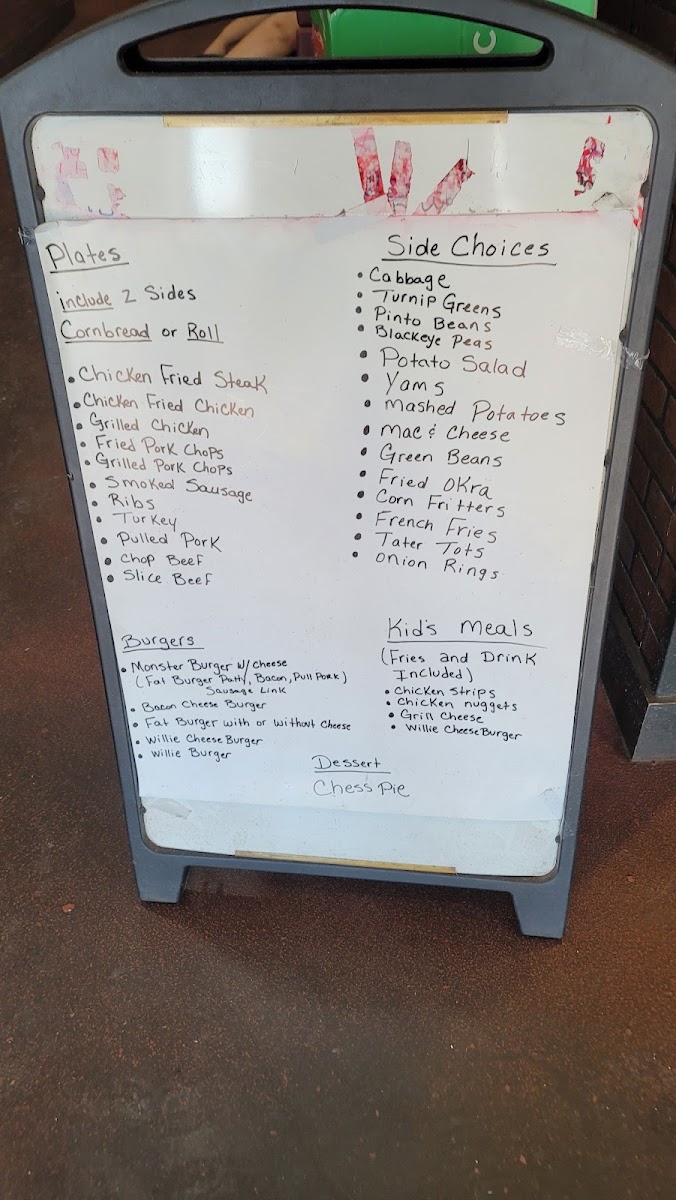 Plates
include 2 Sides
Cornbread or Roll
• Chicken Fried Steak
• Chicken Fried Chicken
• Grilled Chicken
• Fried Pork Chops
• Grilled Pork Chops
• Smoked Sausage
• Ribs
• Turkey
• Pulled Pork
• Chop Beef
• Slice Beef
Side Choices
• Cabbage
• Turnip Greens
• Pinto Beans
• Blackeye Peas
• Potato Salad
• Yams
• Mashed Potatoes
• Mac & Cheese
• Green Beans
• Fried Okra
• Corn Fritters
• French Fries
• Tater Tots
• Onion Rings
Burgers
• Monster Burger w/ Cheese
(Fat Burger Patty, Bacon, Pull Pork)
Sausage Link
• Bacon Cheese Burger
• Fat Burger with or without Cheese
• Willie Cheese Burger
• Willie Burger
Kid's Meals
(Fries and Drink
Included)
• Chicken Strips
• Chicken nuggets
• Grill Cheese
• Willie Cheese Burger
Dessert
Chess Pie